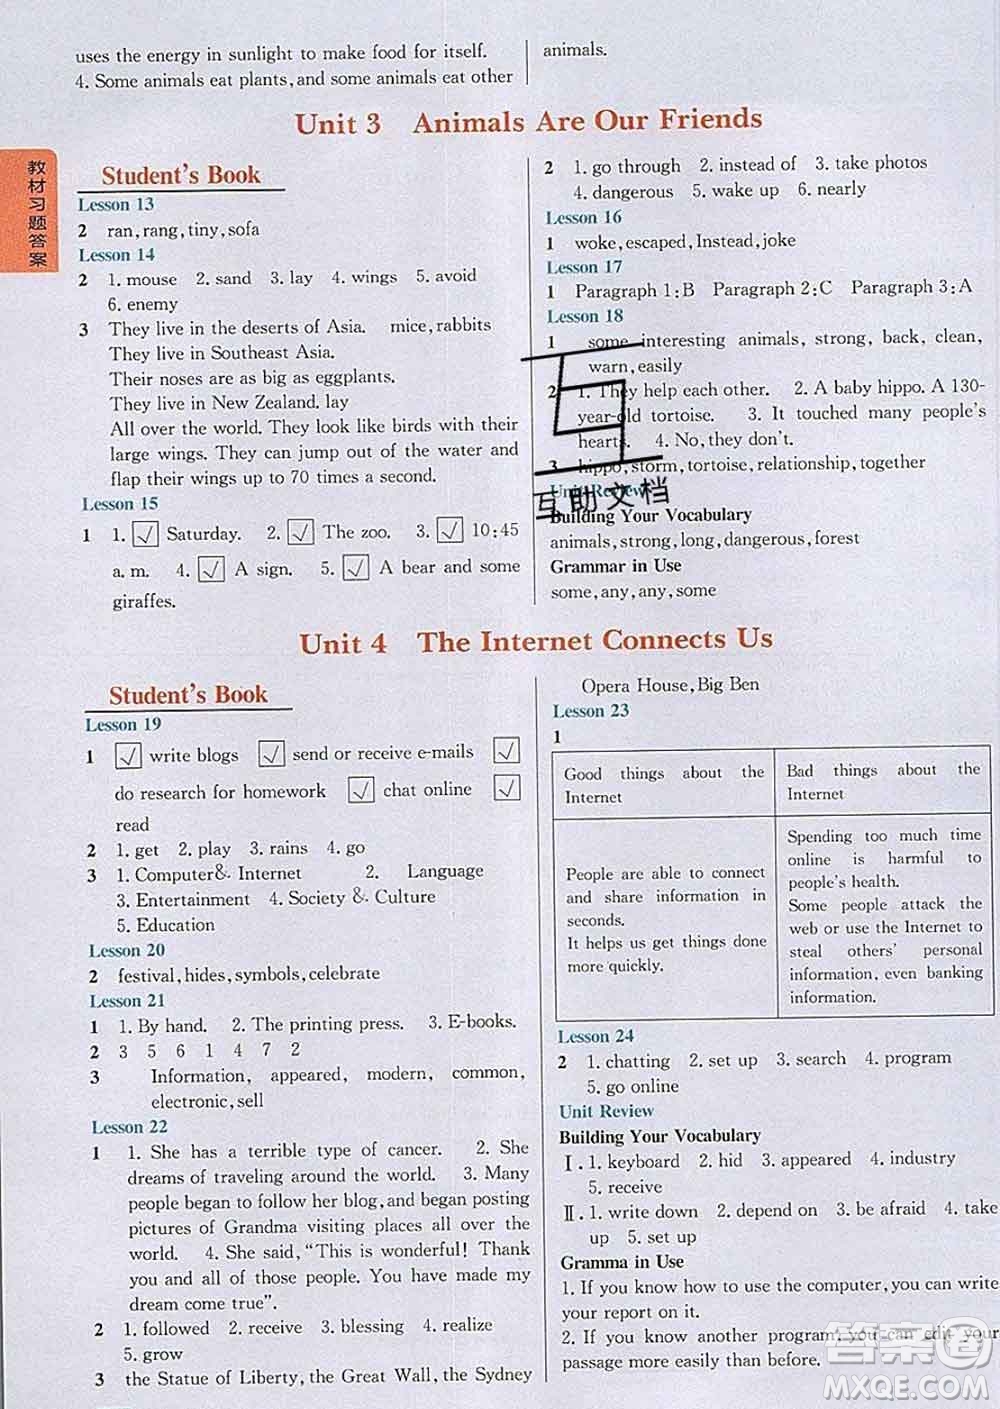 uses the energy in sunlight to make food for itself.
4. Some animals eat plants, and some animals eat other
animals.
Unit 3 Animals Are Our Friends
教材习题答案
Student's Book
Lesson 13
2 ran, rang, tiny, sofa
Lesson 14
2 1. mouse 2. sand 3. lay 4. wings 5. avoid
6. enemy
3 They live in the deserts of Asia. mice, rabbits
They live in Southeast Asia.
Their noses are as big as eggplants.
They live in New Zealand. lay
All over the world. They look like birds with their
large wings. They can jump out of the water and
flap their wings up to 70 times a second.
Lesson 15
1 1. √ Saturday. 2. √ The zoo. 3. √ 10:45
a. m. 4. √ A sign. 5. √ A bear and some
giraffes.
2 1. go through 2. instead of 3. take photos
4. dangerous 5. wake up 6. nearly
Lesson 16
1 woke, escaped, Instead, joke
Lesson 17
1 Paragraph 1:B Paragraph 2:C Paragraph 3:A
Lesson 18
1 some, interesting animals, strong, back, clean,
warn, easily
2 1. They help each other. 2. A baby hippo. A 130-
year-old tortoise. 3. It touched many people's
hearts. 4. No, they don't.
3 hippo, storm, tortoise, relationship, together
Unit Review
Building Your Vocabulary
animals, strong, long, dangerous, forest
Grammar in Use
some, any, any, some
互助文档
Unit 4 The Internet Connects Us
Student's Book
Lesson 19
1 √ write blogs √ send or receive e-mails √
do research for homework √ chat online √
read
2 1. get 2. play 3. rains 4. go
3 1. Computer& Internet 2. Language
3. Entertainment 4. Society & Culture
5. Education
Lesson 20
2 festival, hides, symbols, celebrate
Lesson 21
1 1. By hand. 2. The printing press. 3. E-books.
2 3 5 6 1 4 7 2
3 Information, appeared, modern, common,
electronic, sell
Lesson 22
1 1. She has a terrible type of cancer. 2. She
dreams of traveling around the world. 3. Many
people began to follow her blog, and began posting
pictures of Grandma visiting places all over the
world. 4. She said, "This is wonderful! Thank
you and all of those people. You have made my
dream come true".
2 1. followed 2. receive 3. blessing 4. realize
5. grow
3 the Statue of Liberty, the Great Wall, the Sydney
Opera House, Big Ben
Lesson 23
1
Good things about the
Internet
Bad things about the
Internet
People are able to connect
and share information in
seconds.
It helps us get things done
more quickly.
Spending too much time
online is harmful to
people's health.
Some people attack the
web or use the Internet to
steal others' personal
information, even banking
information.
Lesson 24
2 1. chatting 2. set up 3. search 4. program
5. go online
Unit Review
Building Your Vocabulary
Ⅰ. 1. keyboard 2. hid 3. appeared 4. industry
5. receive
Ⅱ. 1. write down 2. depend on 3. be afraid 4. take
up 5. set up
Gramma in Use
1. If you know how to use the computer, you can write
your report on it.
2. If you know another program, you can edit your
passage more easily than before.
答案圈
MXQE.COM